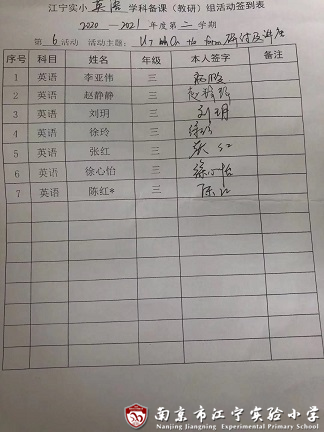 江宁实小 英语 学科备课（教研）组活动签到表
2020 —2021 年度第 二 学期
第 6 活动 活动主题： U7 On the farm 研讨及讲座
序号 科目 姓名 年级 本人签字 备注
1 英语 李亚伟 三
2 英语 赵静静 三 赵静静
3 英语 刘玥 三 刘玥
4 英语 徐玲 三 徐玲
5 英语 张红 三 张红
6 英语 徐心怡 三 徐心怡
7 英语 陈红* 三 陈红
南京市江宁实验小学
Nanjing Jiangning Experimental Primary School